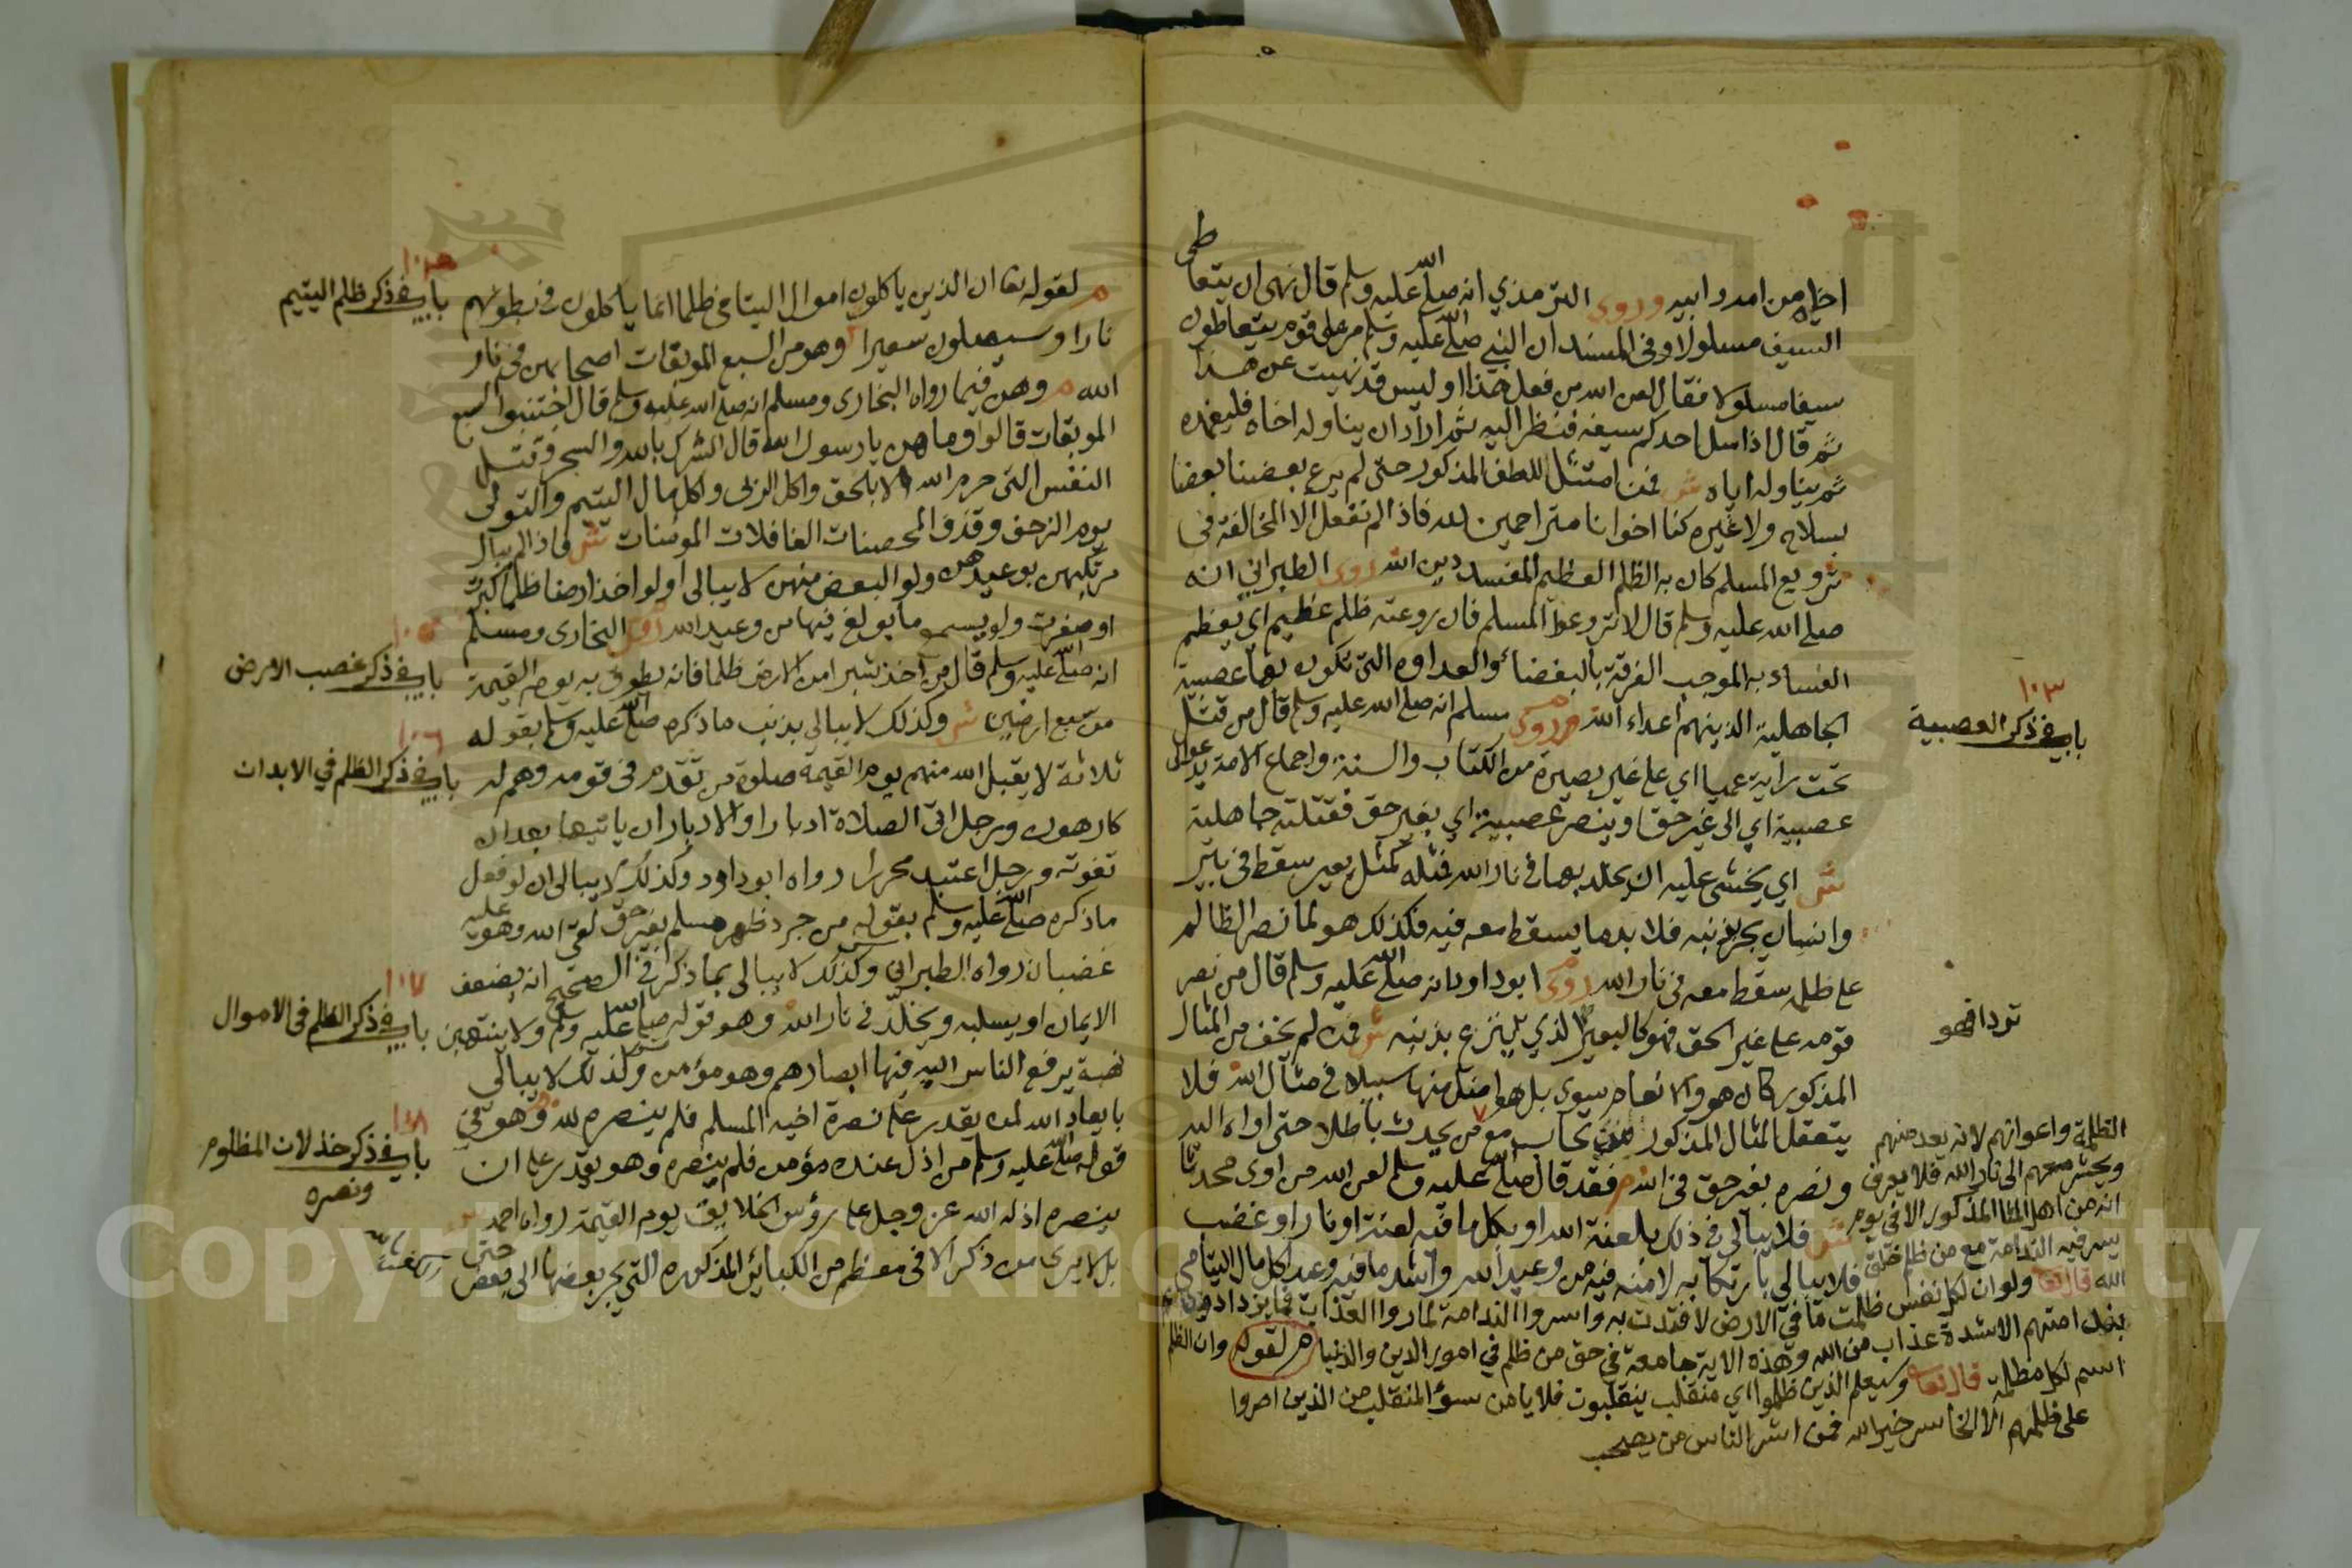 اخاه من امه وابيه وروى الترمذي انه صلى الله عليه وسلم قال نهى ان يتعاطى
السيف مسلولا وفى المسند ان النبي صلى الله عليه وسلم مر على قوم يتعاطون
سيفا مسلولا فقال لعن الله من فعل هذا اوليس قد نهيت عن هذا
ثم قال اذا سل احدكم سيفه فنظر اليه ثم اراد ان يناوله اخاه فليغمده
ثم يناوله اياه ش فمن امتثل للطف المذكور حتى لم يرع بعضنا بعضا
بسلاح ولا غيره كنا اخوانا متراحمين لله فاذا لم نفعل الا المخالفة فى
ترويع المسلم كان به الظلم العظيم المفسد دين الله روى الطبراني انه
صلى الله عليه وسلم قال لا تروعوا المسلم فان روعته ظلم عظيم اي يعظم
الفساد به الموجب الفرقة بالبغضاء والعداوه التى تكون بها عصبية
الجاهلية الذينهم اعداء الله وروى مسلم انه صلى الله عليه وسلم قال من قتل
تحت راية عميا اي على غير بصيرة من الكتاب والسنة واجماع الامة يدعوا الى
عصبية اي الى غير حق اوينصر عصبية اي بغير حق فقتلته جاهلية
ش اي يخشى عليه ان يخلد بها فى نار الله فمثله كمثل بعير سقط فى بئر
وانسان يجر بذنبه فلا بد ما يسقط معه فيه فكذلك هو لما نصر الظالم
على ظلمه سقط معه فى نار الله روى ابوداود انه صلى الله عليه وسلم قال من نصر
قومه على غير الحق فهو كالبعير الذي ينزع بذنبه ش فمن لم يخف من المثال
المذكور كان هو والانعام سوى بل هو اضل منها سبيلا فى مثال الله فلا
يتعقل المثال المذكور من تحاب مع من يحدث باطلا حتى اواه اليه
ونصره بغير حق فى الله م فقد قال صلى الله عليه وسلم لعن الله من اوى محدثا
ش فلا يبالي فى ذلك بلعنة الله او بكل ما فيه لعنة او نار او غضب
فلا يبالي بارتكابه لامنه فيه من وعيد الله واشد ما فيه وعد اكل مال اليتامى
باب فى ذكر العصبية
١٠٣
تردا فهو
الظلمة واعوانهم لانه يعد منهم
ويحشر معهم الى نار الله فلا يعرف
انه من اهل المثال المذكور الا فى يوم
يسر فيه الندامة مع من ظلم خلق
الله قال تعالى ولو ان لكل نفس ظلمت ما في الارض لافتدت به واسروا الندامة لما راوا العذاب
بندامتهم الا شدة عذاب من الله وهذه الاية جامعة في حق من ظلم في امور الدين والدنيا م لقوله وان الظلم
اسم لكل مظلمة قال تعالى وسيعلم الذين ظلموا اي منقلب ينقلبون فلا يامن سوء المنقلب من الذين اصروا
على ظلمهم الا الخاسر خير الله فمن اشر الناس من يصحب
م لقوله تعا ان الذين ياكلون اموال اليتامى ظلما انما ياكلون فى بطونهم
نارا وسيصلون سعيرا وهو من السبع الموبقات اصحابهن فى نار
الله م وهن فيما رواه البخارى ومسلم انه صلى الله عليه وسلم قال اجتنبوا السبع
الموبقات قالوا وما هن يا رسول الله قال الشرك بالله والسحر وقتل
النفس التى حرم الله الا بالحق واكل الربى واكل مال اليتيم والتولى
يوم الزحف وقذف المحصنات الغافلات المؤمنات ش فاذا لم يبال
مرتكبهن بوعيدهن ولو البعض منهن لا يبالى ولو اخذ ارضا ظلما كبرت
او صغرت ولو يسمع ما بولغ فيها من وعيد الله البخارى ومسلم
انه صلى الله عليه وسلم قال من اخذ شبرا من الارض ظلما فانه يطوق به يوم القيمة
من سبع ارضين ش وكذلك لا يبالي بذنب ما ذكره صلى الله عليه وسلم بقوله
ثلاثة لا يقبل الله منهم يوم القيمة صلوة من تقدم فى قومه وهم له
كارهون ورجل اتى الصلاة ادبارا والادبار ان ياتيها بعد ان
تفوته ورجل اعتبد محررا رواه ابوداود وكذلك لا يبالى ان لو فعل
ما ذكره صلى الله عليه وسلم بقوله من جرد ظهر مسلم بغير حق لقى الله وهو عليه
غضبان رواه الطبراني وكذلك لا يبالى بما ذكر فى الصحيح انه يضعف
الايمان او يسلبه ويخلد فى نار الله وهو قوله صلى الله عليه وسلم ولا ينتهبن
نهبة يرفع الناس اليه فيها ابصارهم وهو مؤمن وكذلك لا يبالى
بايعاد الله لمن يقدر على نصرة اخيه المسلم فلم ينصره لله وهو فى
قوله صلى الله عليه وسلم من اذل عنده مؤمن فلم ينصره وهو يقدر على ان
ينصره اذله الله عز وجل على رؤس الخلايق يوم القيمة رواه احمد
بل لا يرى من ذكر الا فى معظم من الكبائر المذكوره التي يجر بعضها الى بعض حتى
باب فى ذكر ظلم اليتيم
١٠٥
باب فى ذكر غصب الارض
١٠٦
باب فى ذكر الظلم في الابدان
١٠٧
باب فى ذكر الظلم فى الاموال
١٠٨
باب فى ذكر خذلان المظلوم
ونصره
Copyright © King Saud University